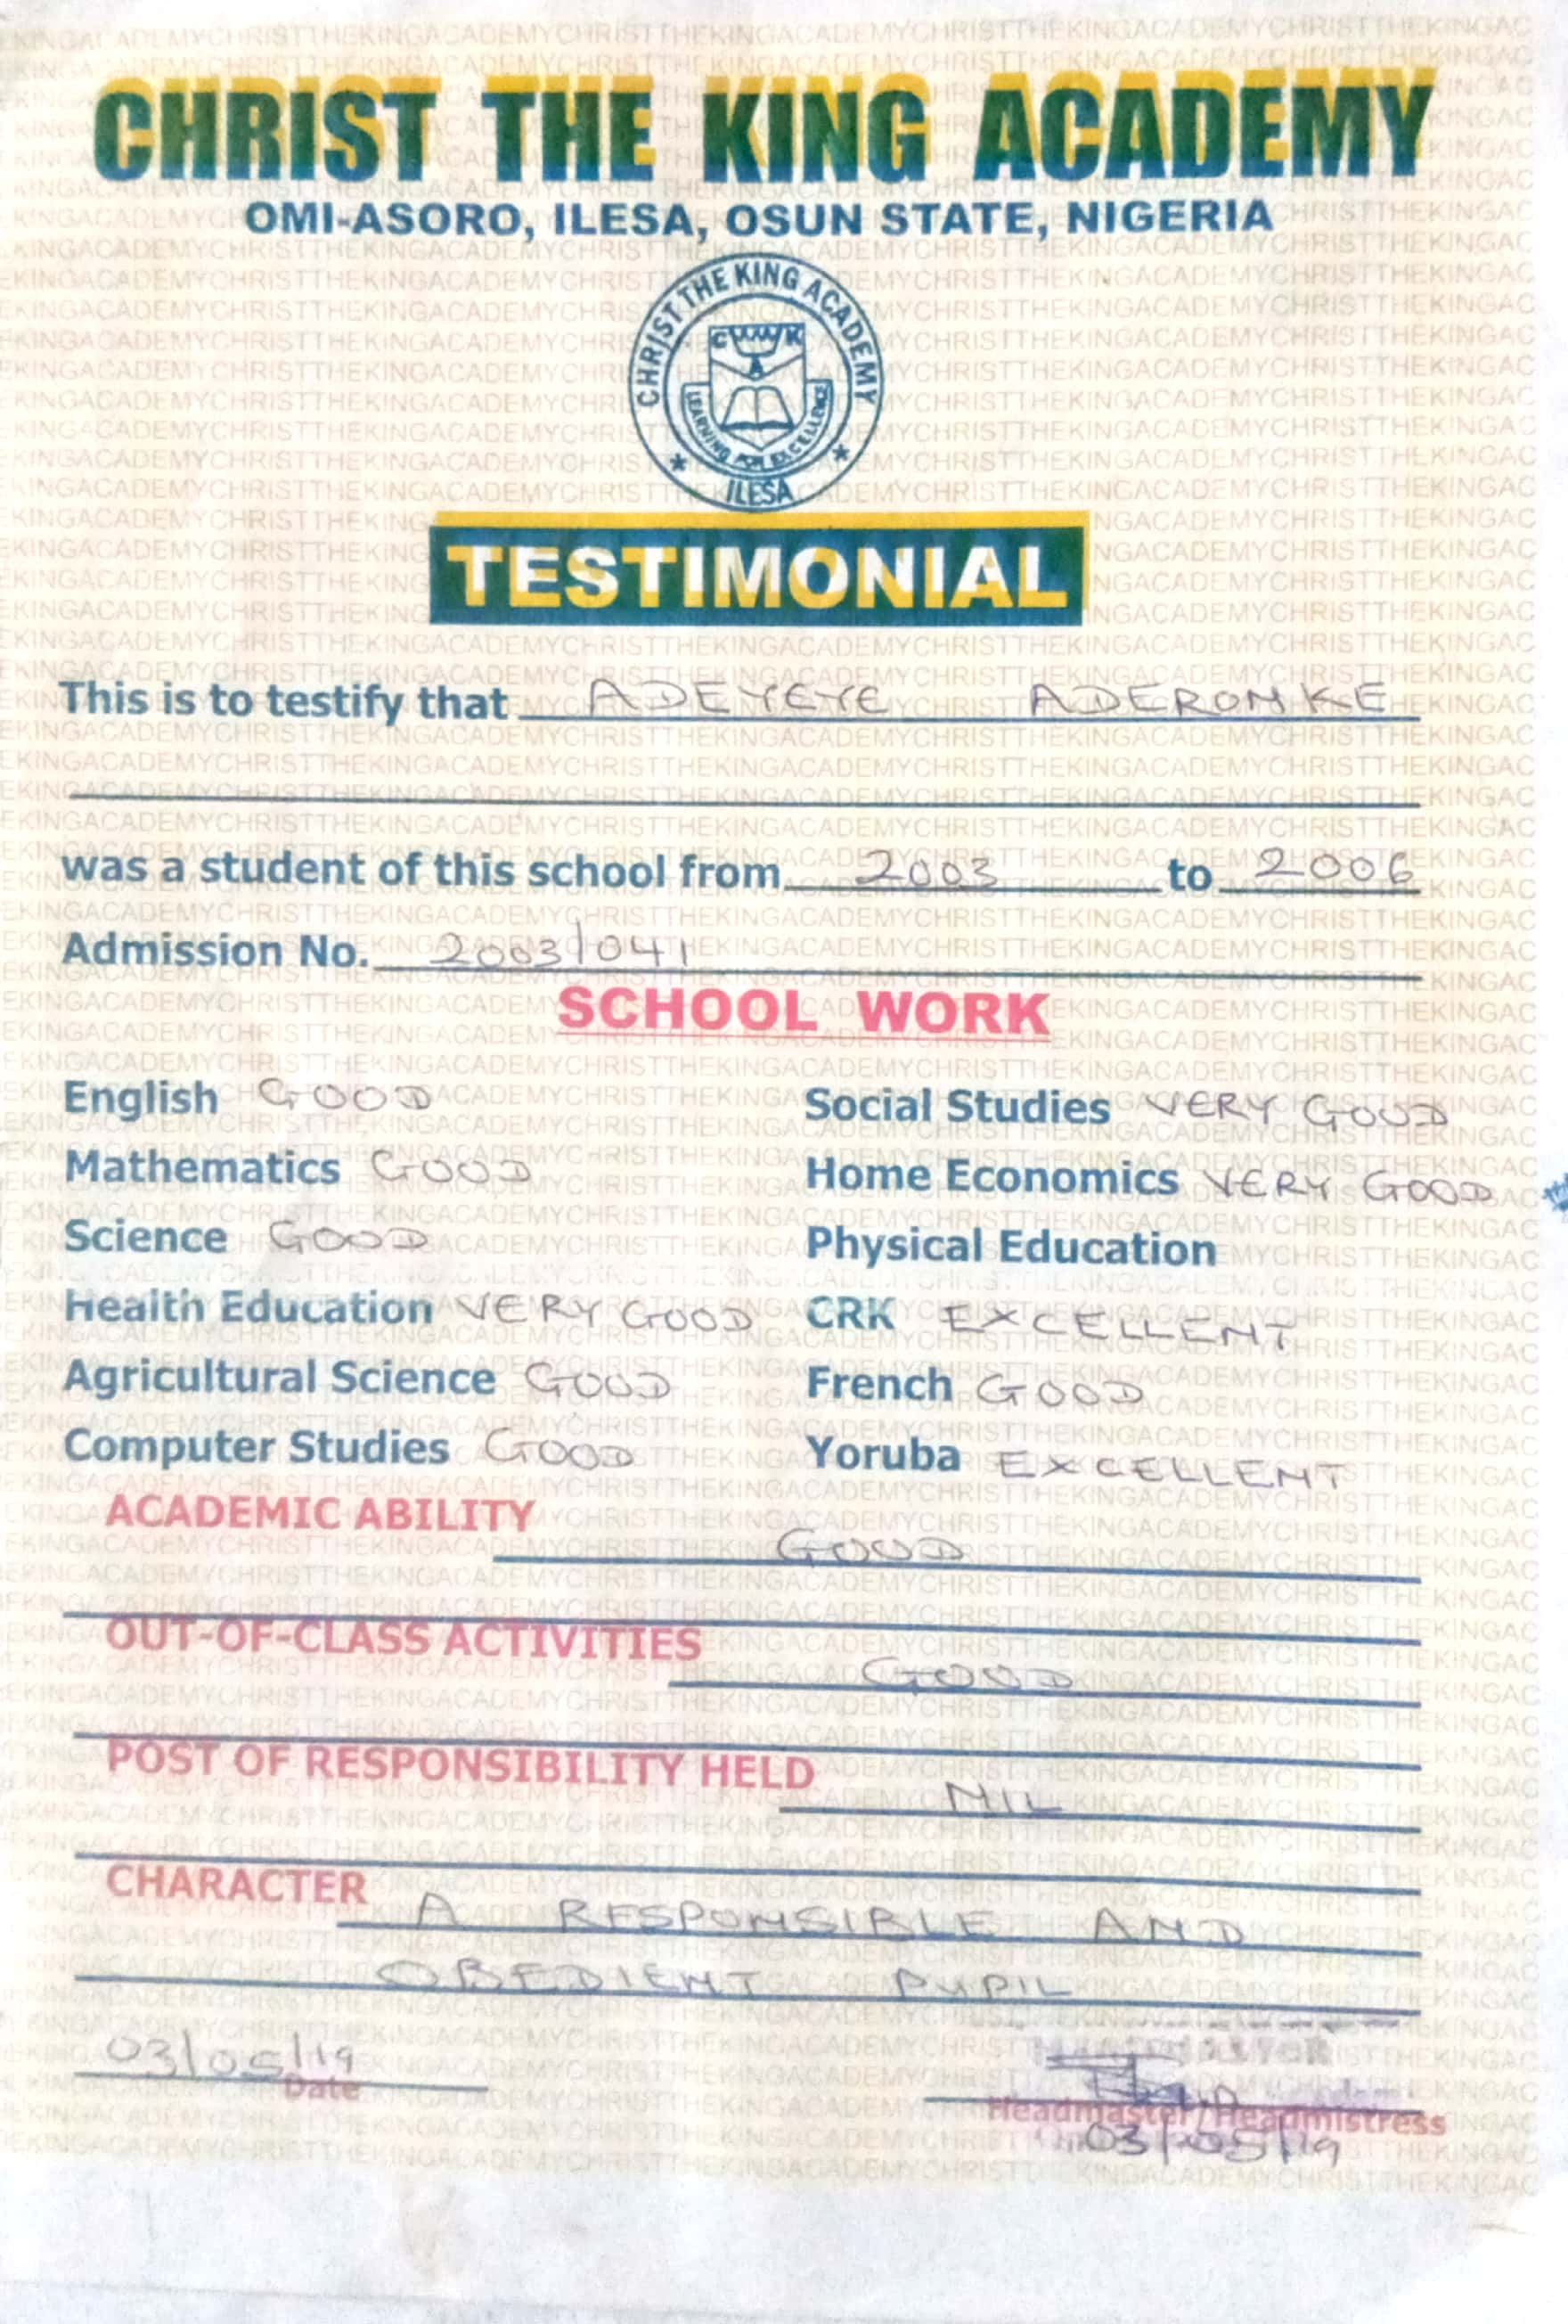 CHRIST THE KING ACADEMY
OMI-ASORO, ILESA, OSUN STATE, NIGERIA
CHRIST THE KING ACADEMY
C K
A
LEARNING FOR EXCELLENCE
ILESA
TESTIMONIAL
This is to testify that ADEYEYE ADERONKE
was a student of this school from 2003 to 2006
Admission No. 2003/041
SCHOOL WORK
English GOOD Social Studies VERY GOOD
Mathematics GOOD Home Economics VERY GOOD
Science GOOD Physical Education
Health Education VERY GOOD CRK EXCELLENT
Agricultural Science GOOD French GOOD
Computer Studies GOOD Yoruba EXCELLENT
ACADEMIC ABILITY GOOD
OUT-OF-CLASS ACTIVITIES GOOD
POST OF RESPONSIBILITY HELD NIL
CHARACTER A RESPONSIBLE AND
OBEDIENT PUPIL
03/05/19
Date Headmaster/Headmistress
03/05/19